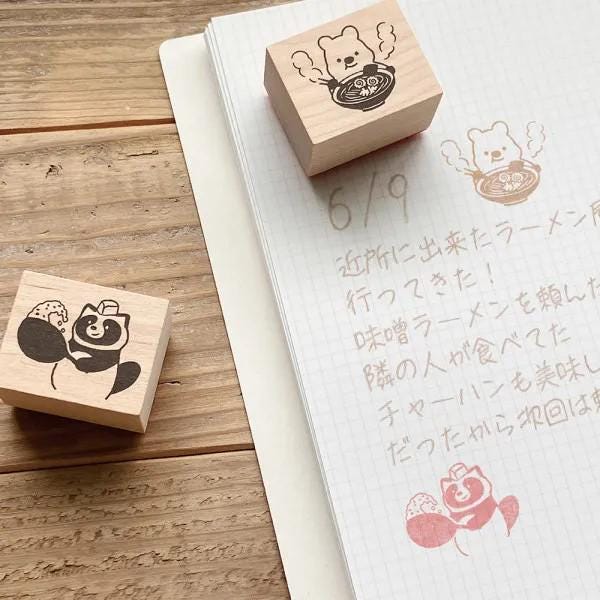 6/9
近所に出来たラーメン
行ってきた!
味噌ラーメンを頼んだ
隣の人が食べてた
チャーハンも美味し
だったから次回は